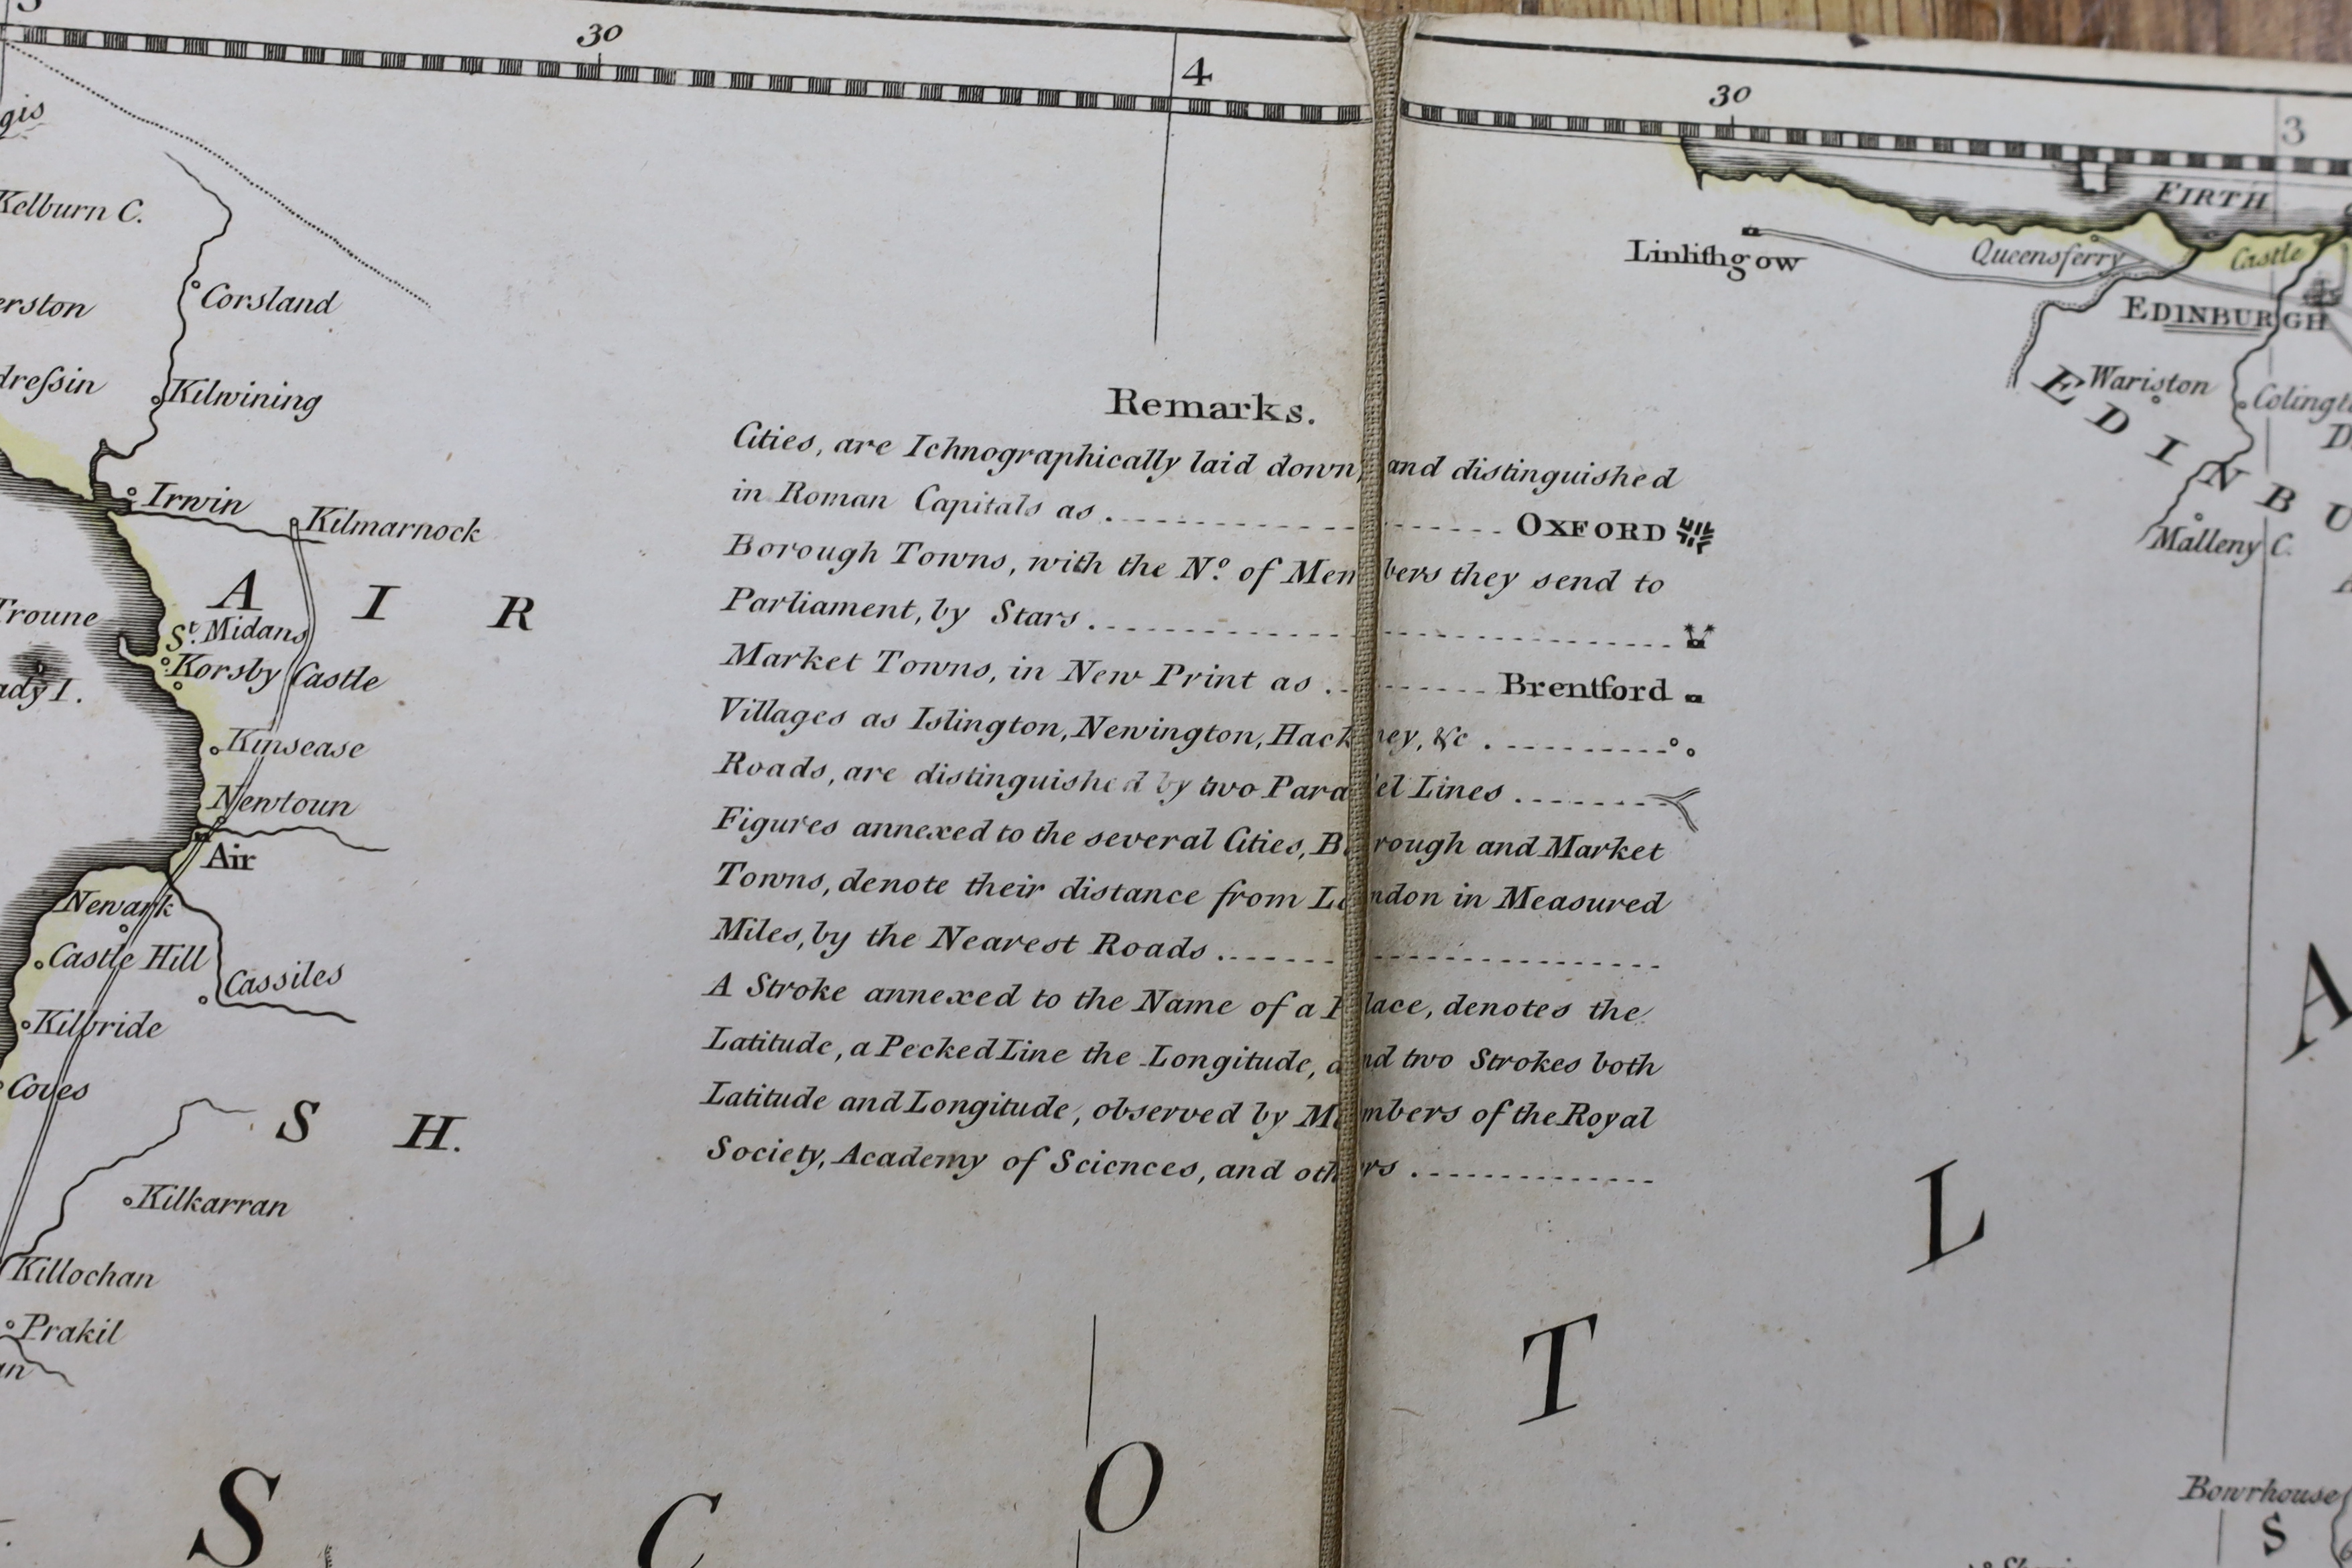 30
4
30
3
gis
Kelburn C.
FIRTH
Linlithgow
Queensferry
Castle
Corsland
erston
EDINBURGH
Wariston
dreſsin
Kilwining
Remarks.
Cities, are Ichnographically laid down, and distinguished
in Roman Capitals as . OXFORD
Borough Towns, with the No. of Members they send to
Parliament, by Stars .
Market Towns, in New Print as . Brentford
Villages as Islington, Newington, Hackney, &c .
Roads, are distinguished by two Parallel Lines .
Figures annexed to the several Cities, Borough and Market
Towns, denote their distance from London in Measured
Miles, by the Nearest Roads .
A Stroke annexed to the Name of a Place, denotes the
Latitude, a Pecked Line the Longitude, and two Strokes both
Latitude and Longitude, observed by Members of the Royal
Society, Academy of Sciences, and others .
EDINBU
Malleny C.
Irwin
Kilmarnock
AIR
Troune
St. Midans
Korsby Castle
ady I.
Kinsease
Newtoun
Air
Newark
Castle Hill
Cassiles
Kilbride
Coves
SH.
Kilkarran
Killochan
Prakil
an
SCOTLA
Bowrhouse
S